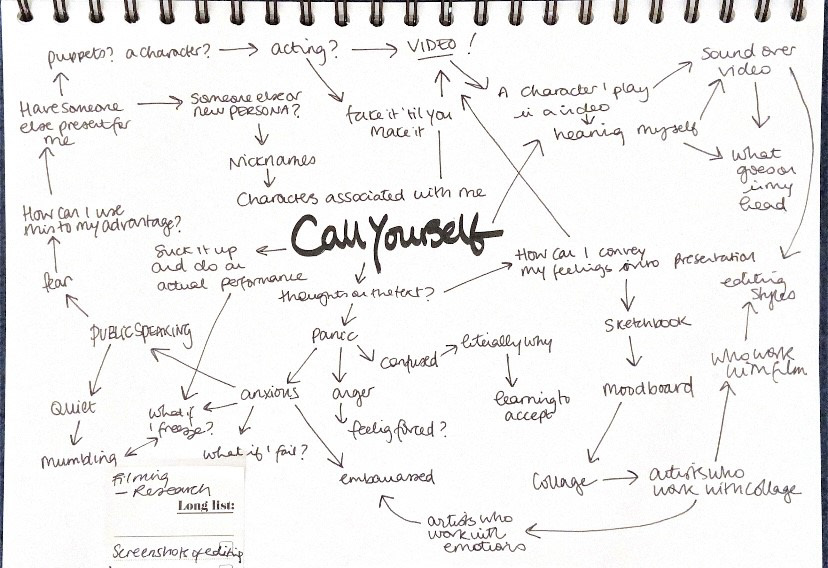 puppets? a character? → acting? → VIDEO!
sound over
video
A character I play
in a video
Have someone
else present for
me
someone else or
new PERSONA?
fake it 'til you
make it
hearing myself
what
goes on
in my
head
Nicknames
Characters associated with me
How can I use
this to my advantage?
Call Yourself
Suck it up
and do an
actual performance
How can I convey
my feelings onto presentation
fear
thoughts on the text?
editing
styles
PUBLIC SPEAKING
panic
confused
literally why
Sketchbook
who work
with film
Quiet
what if
I freeze?
anxious
anger
learning to
accept
moodboard
mumbling
what if I fail?
feeling forced?
embarrassed
Collage
artists who
work with collage
artists who
work with
emotions
Filming
- Research
Long list:
Screenshots of editing